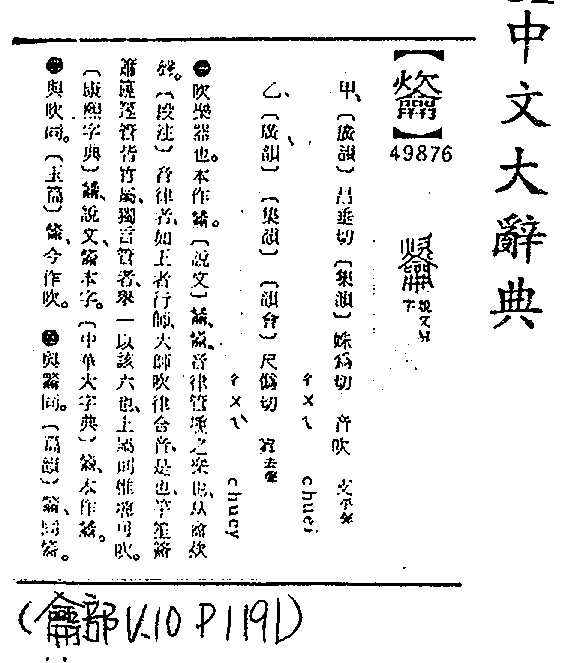 中文大辭典
【䶴】
49876
說文
甲、〔廣韻〕昌垂切〔集韻〕姝爲切 音吹 支平聲
ㄔㄨㄟ chuei
乙、〔廣韻〕〔集韻〕〔韻會〕尺僞切 寘去聲
ㄔㄨㄟˋ chuey
❶吹樂器也。本作䶴。〔說文〕䶴、音律管壎之樂也、从龠炊
聲。〔段注〕音律者、如王者行師、大師吹律合音、是也、竽笙籥
簫篪篴管皆竹屬、獨言管者、舉一以該六也、土屬則惟壎可吹。
〔康熙字典〕䶴、說文、龡本字。〔中華大字典〕龡、本作䶴。
❷與吹同。〔玉篇〕龡、今作吹。 ❸與 同。〔篇韻〕 同 。
(龠部 V.10 P1191)